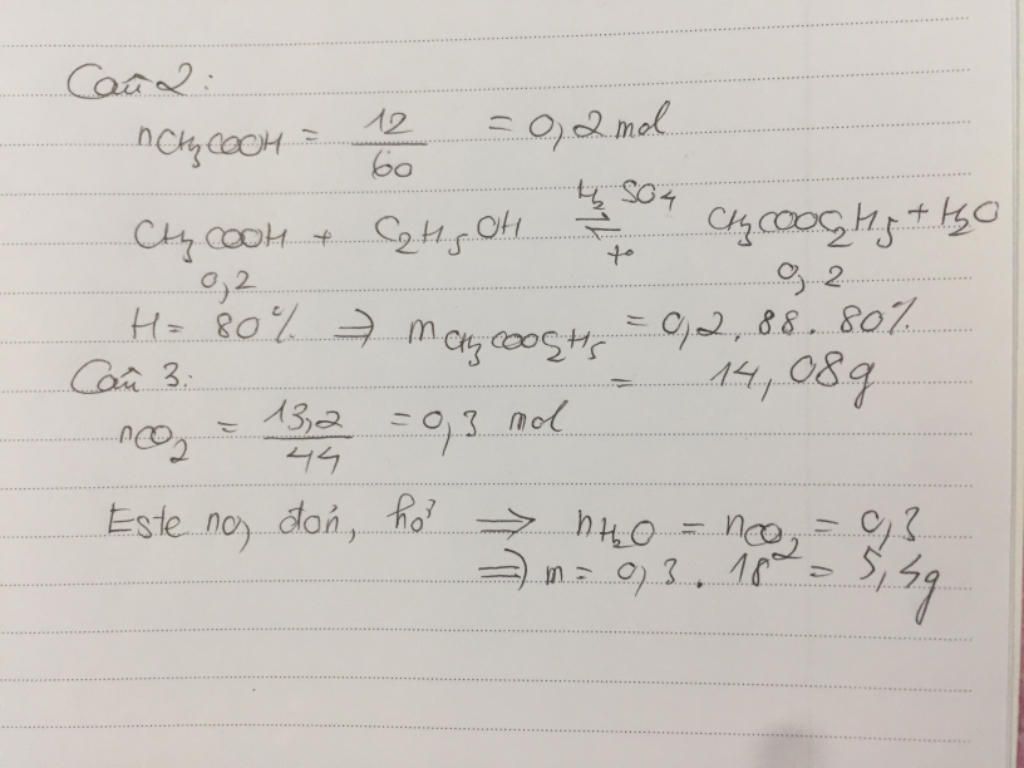 Câu 2:
nCH₃COOH = 12/60 = 0,2 mol
CH₃COOH + C₂H₅OH ⇌ (H₂SO₄, t°) CH₃COOC₂H₅ + H₂O
0,2 0,2
H = 80% ⇒ mCH₃COOC₂H₅ = 0,2. 88. 80%
Câu 3: = 14,08g
nCO₂ = 13,2/44 = 0,3 mol
Este no, đơn, hở ⇒ nH₂O = nCO₂ = 0,3
⇒ m = 0,3. 18 = 5,4g